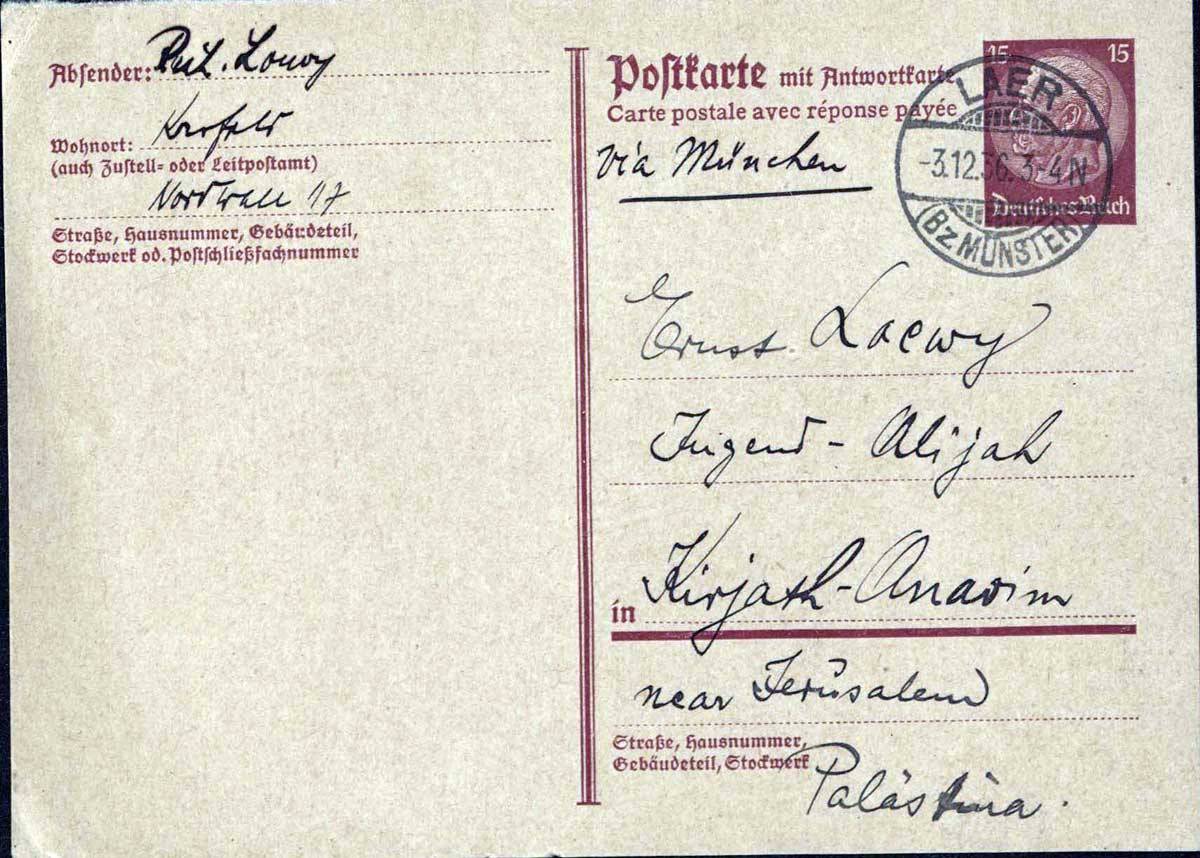 Absender: Rich. Loewy
Wohnort: Krefeld
(auch Zustell- oder Leitpostamt)
Nordwall 17
Straße, Hausnummer, Gebäudeteil,
Stockwerk od. Postschließfachnummer
Postkarte mit Antwortkarte
Carte postale avec réponse payée
via München
15 15
Deutsches Reich
LAER
-3.12.36.3-4N
(Bz MÜNSTER)
Ernst Loewy
Jugend-Alijah
in Kirjath-Anavim
near Jerusalem
Straße, Hausnummer,
Gebäudeteil, Stockwerk
Palästina.